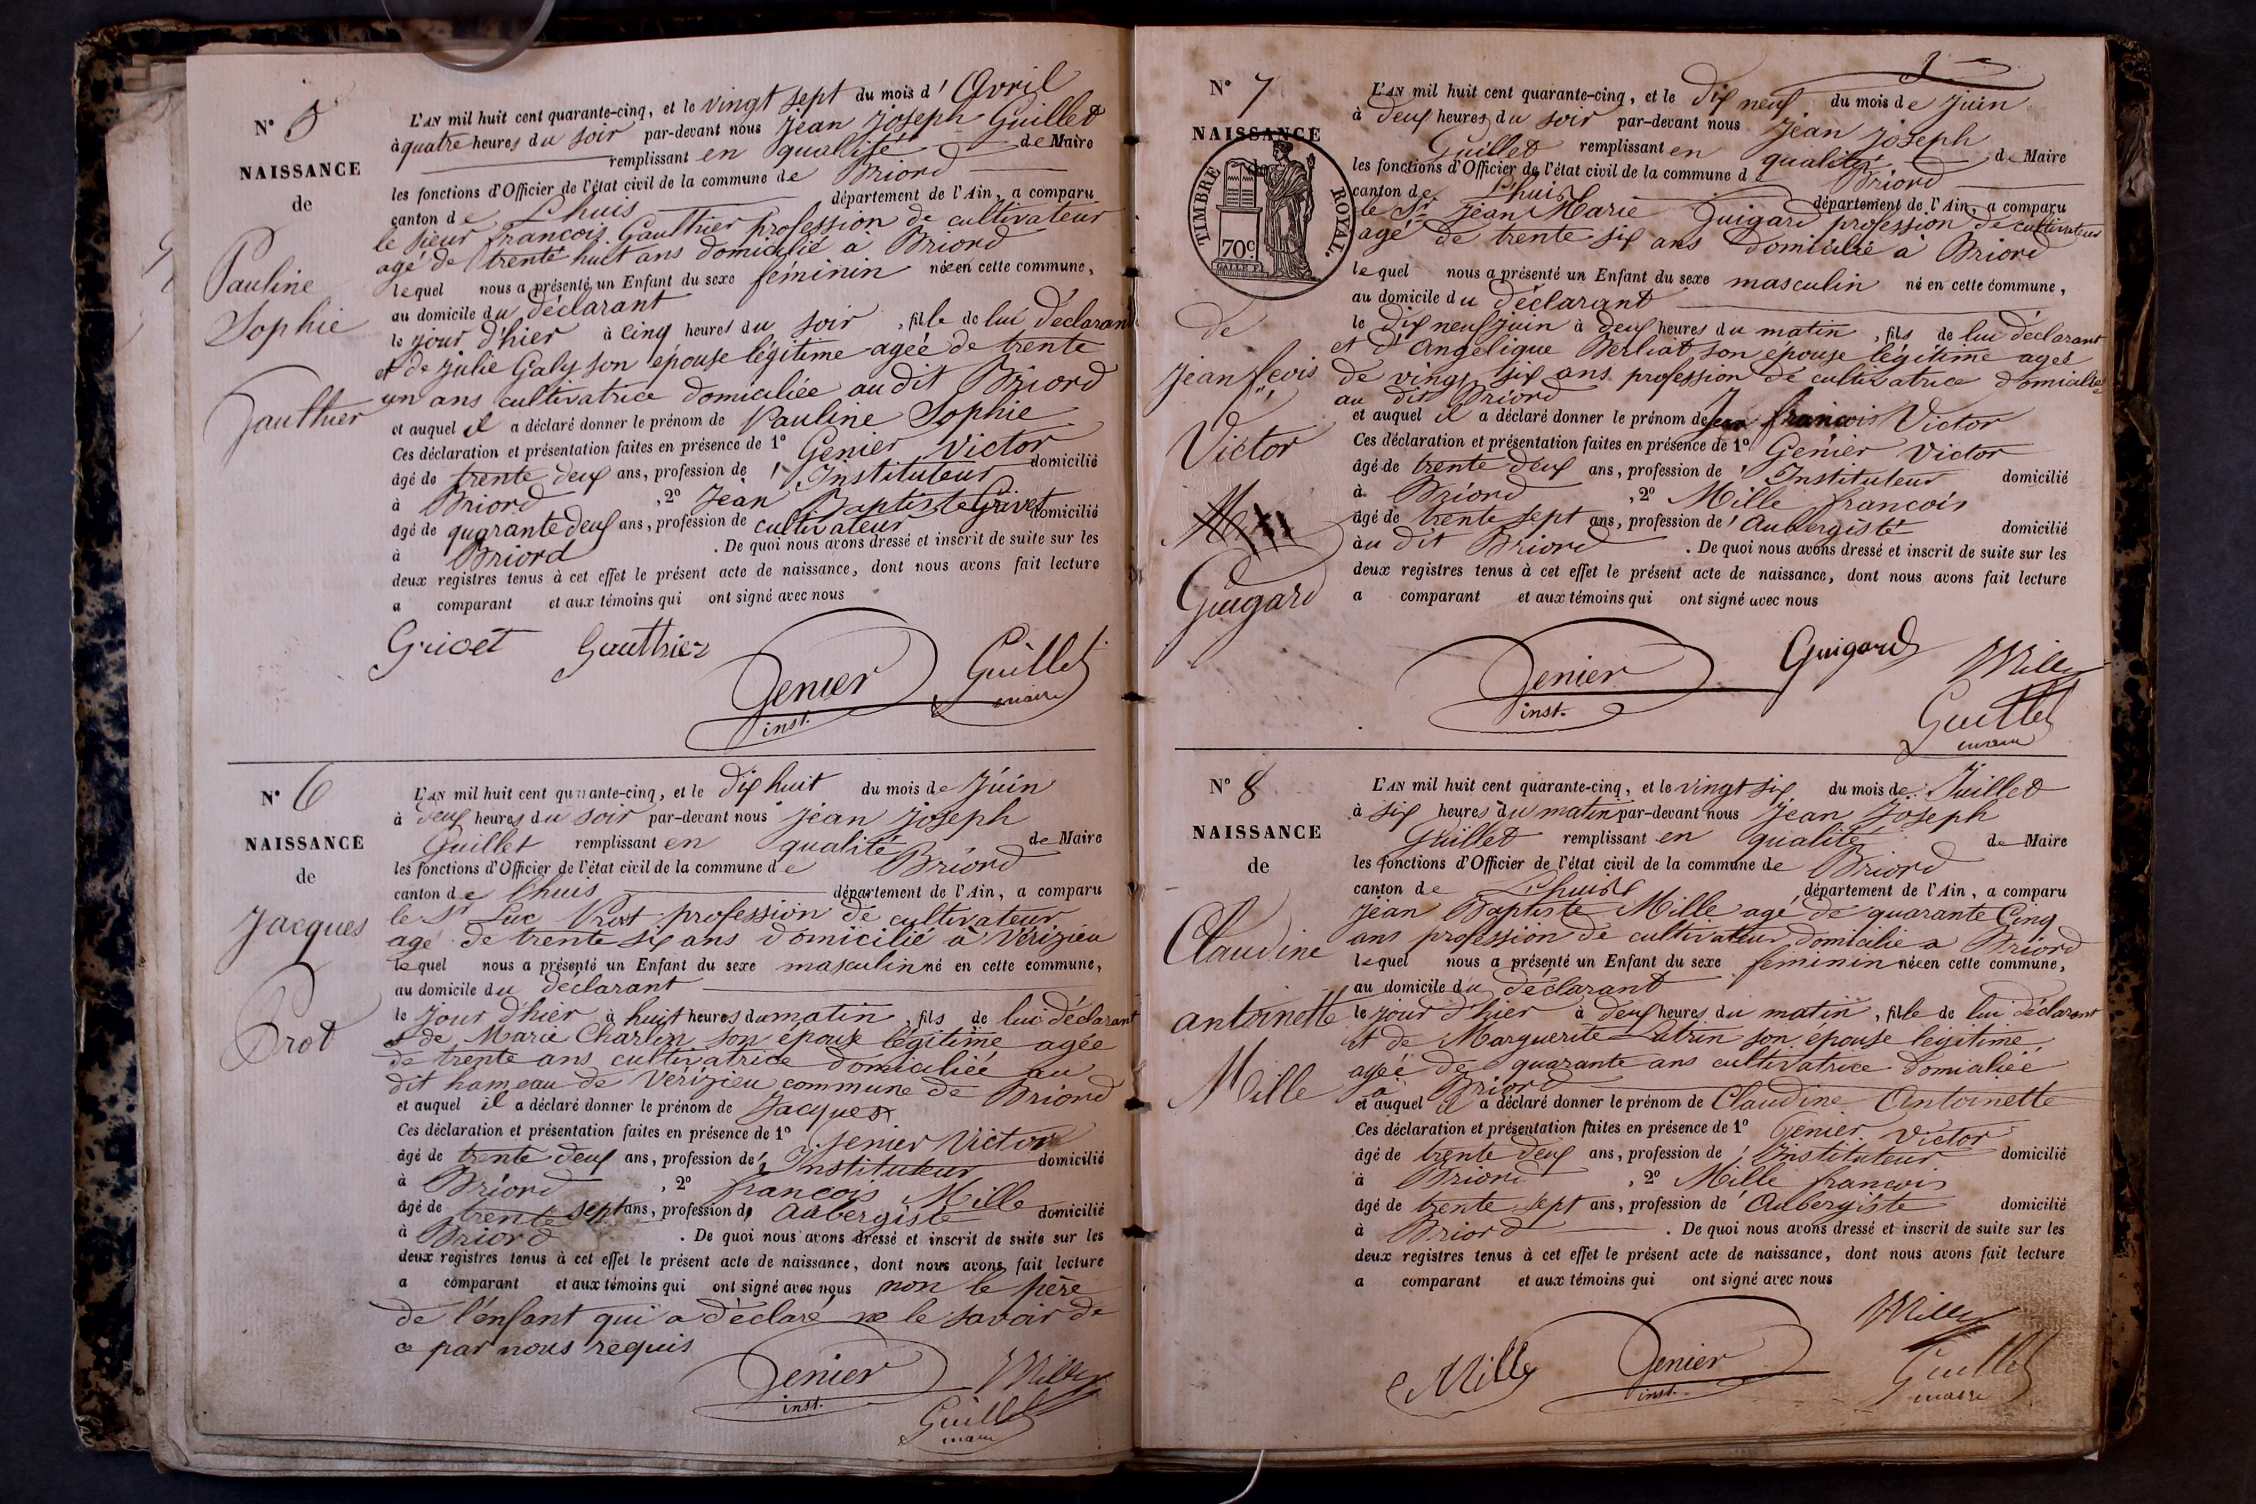 N° 5
NAISSANCE
de
Pauline
Sophie
Gauthier
L'AN mil huit cent quarante-cinq, et le vingt sept du mois d' Avril
à quatre heures du soir par-devant nous Jean Joseph Guillet
remplissant en qualité de Maire
les fonctions d'Officier de l'état civil de la commune de Briord
canton de Lhuis département de l'Ain, a comparu
le sieur francois Gauthier profession de cultivateur
agé de trente huit ans domicilié a Briord
lequel nous a présenté un Enfant du sexe féminin née en cette commune,
au domicile du déclarant
le jour d'hier à cinq heures du soir, fille de lui déclarant
et de Julie Galy son épouse légitime agée de trente
un ans cultivatrice domiciliée au dit Briord
et auquel il a déclaré donner le prénom de Pauline Sophie
Ces déclaration et présentation faites en présence de 1° Genier Victor
âgé de trente deux ans, profession de Instituteur domicilié
à Briord, 2° Jean Baptiste Grivet
âgé de quarante deux ans, profession de cultivateur domicilié
à Briord. De quoi nous avons dressé et inscrit de suite sur les
deux registres tenus à cet effet le présent acte de naissance, dont nous avons fait lecture
a comparant et aux témoins qui ont signé avec nous
Grivet Gauthier
Genier Guillet
inst. maire
N° 6
NAISSANCE
de
Jacques
Prot
L'AN mil huit cent quarante-cinq, et le dix huit du mois de Juin
à deux heures du soir par-devant nous Jean Joseph
Guillet remplissant en qualité de Maire
les fonctions d'Officier de l'état civil de la commune de Briord
canton de lhuis département de l'Ain, a comparu
le Sr Luc Prost profession de cultivateur
agé de trente six ans domicilié à Vérizieu
lequel nous a présenté un Enfant du sexe masculin né en cette commune,
au domicile du déclarant
le jour d'hier à huit heures du matin, fils de lui déclarant
et de Marie Charlin son épouse légitime agée
de trente ans cultivatrice domiciliée au
dit hameau de Vérizieu commune de Briord
et auquel il a déclaré donner le prénom de Jacques
Ces déclaration et présentation faites en présence de 1° Genier Victor
âgé de trente deux ans, profession de Instituteur domicilié
à Briord, 2° francois Mille
âgé de trente sept ans, profession d' Aubergiste domicilié
à Briord. De quoi nous avons dressé et inscrit de suite sur les
deux registres tenus à cet effet le présent acte de naissance, dont nous avons fait lecture
a comparant et aux témoins qui ont signé avec nous non le père
de l'enfant qui a déclaré ne le savoir de
ce par nous requis
Genier Mille
inst. Guillet
maire
N° 7
NAISSANCE
TIMBRE ROYAL.
70c
de
Jean fcois
Victor
Guigard
L'AN mil huit cent quarante-cinq, et le dix neuf du mois de Juin
à deux heures du soir par-devant nous Jean Joseph
Guillet remplissant en qualité de Maire
les fonctions d'Officier de l'état civil de la commune de Briord
canton de Lhuis département de l'Ain, a comparu
le Sr Jean Marie Guigard profession de cultivateur
agé de trente six ans domicilié à Briord
lequel nous a présenté un Enfant du sexe masculin né en cette commune,
au domicile du déclarant
le dix neuf juin à deux heures du matin, fils de lui déclarant
et d'Angélique Berliat son épouse légitime agés
de vingt six ans profession de cultivatrice domiciliée
au dit Briord
et auquel il a déclaré donner le prénom de Jean francois Victor
Ces déclaration et présentation faites en présence de 1° Genier Victor
âgé de trente deux ans, profession d' Instituteur domicilié
à Briord, 2° Mille francois
âgé de trente sept ans, profession de Aubergiste domicilié
à au dit Briord. De quoi nous avons dressé et inscrit de suite sur les
deux registres tenus à cet effet le présent acte de naissance, dont nous avons fait lecture
a comparant et aux témoins qui ont signé avec nous
Genier Guigard Mille
inst. Guillet
maire
N° 8
NAISSANCE
de
Claudine
antoinette
Mille
L'AN mil huit cent quarante-cinq, et le vingt six du mois de Juillet
à six heures du matin par-devant nous Jean Joseph
Guillet remplissant en qualité de Maire
les fonctions d'Officier de l'état civil de la commune de Briord
canton de Lhuis département de l'Ain, a comparu
Jean Baptiste Mille agé de quarante Cinq
ans profession de cultivateur domicilié a Briord
lequel nous a présenté un Enfant du sexe feminin née en cette commune,
au domicile du déclarant
le jour d'hier à deux heures du matin, fille de lui déclarant
et de Marguerite Latrin son épouse légitime
agée de quarante ans cultivatrice domiciliée
à Briord
et auquel il a déclaré donner le prénom de Claudine Antoinette
Ces déclaration et présentation faites en présence de 1° Genier Victor
âgé de trente deux ans, profession de Instituteur domicilié
à Briord, 2° Mille francois
âgé de trente sept ans, profession de Aubergiste domicilié
à Briord. De quoi nous avons dressé et inscrit de suite sur les
deux registres tenus à cet effet le présent acte de naissance, dont nous avons fait lecture
a comparant et aux témoins qui ont signé avec nous
Mille
Mille Genier Guillet
inst. maire